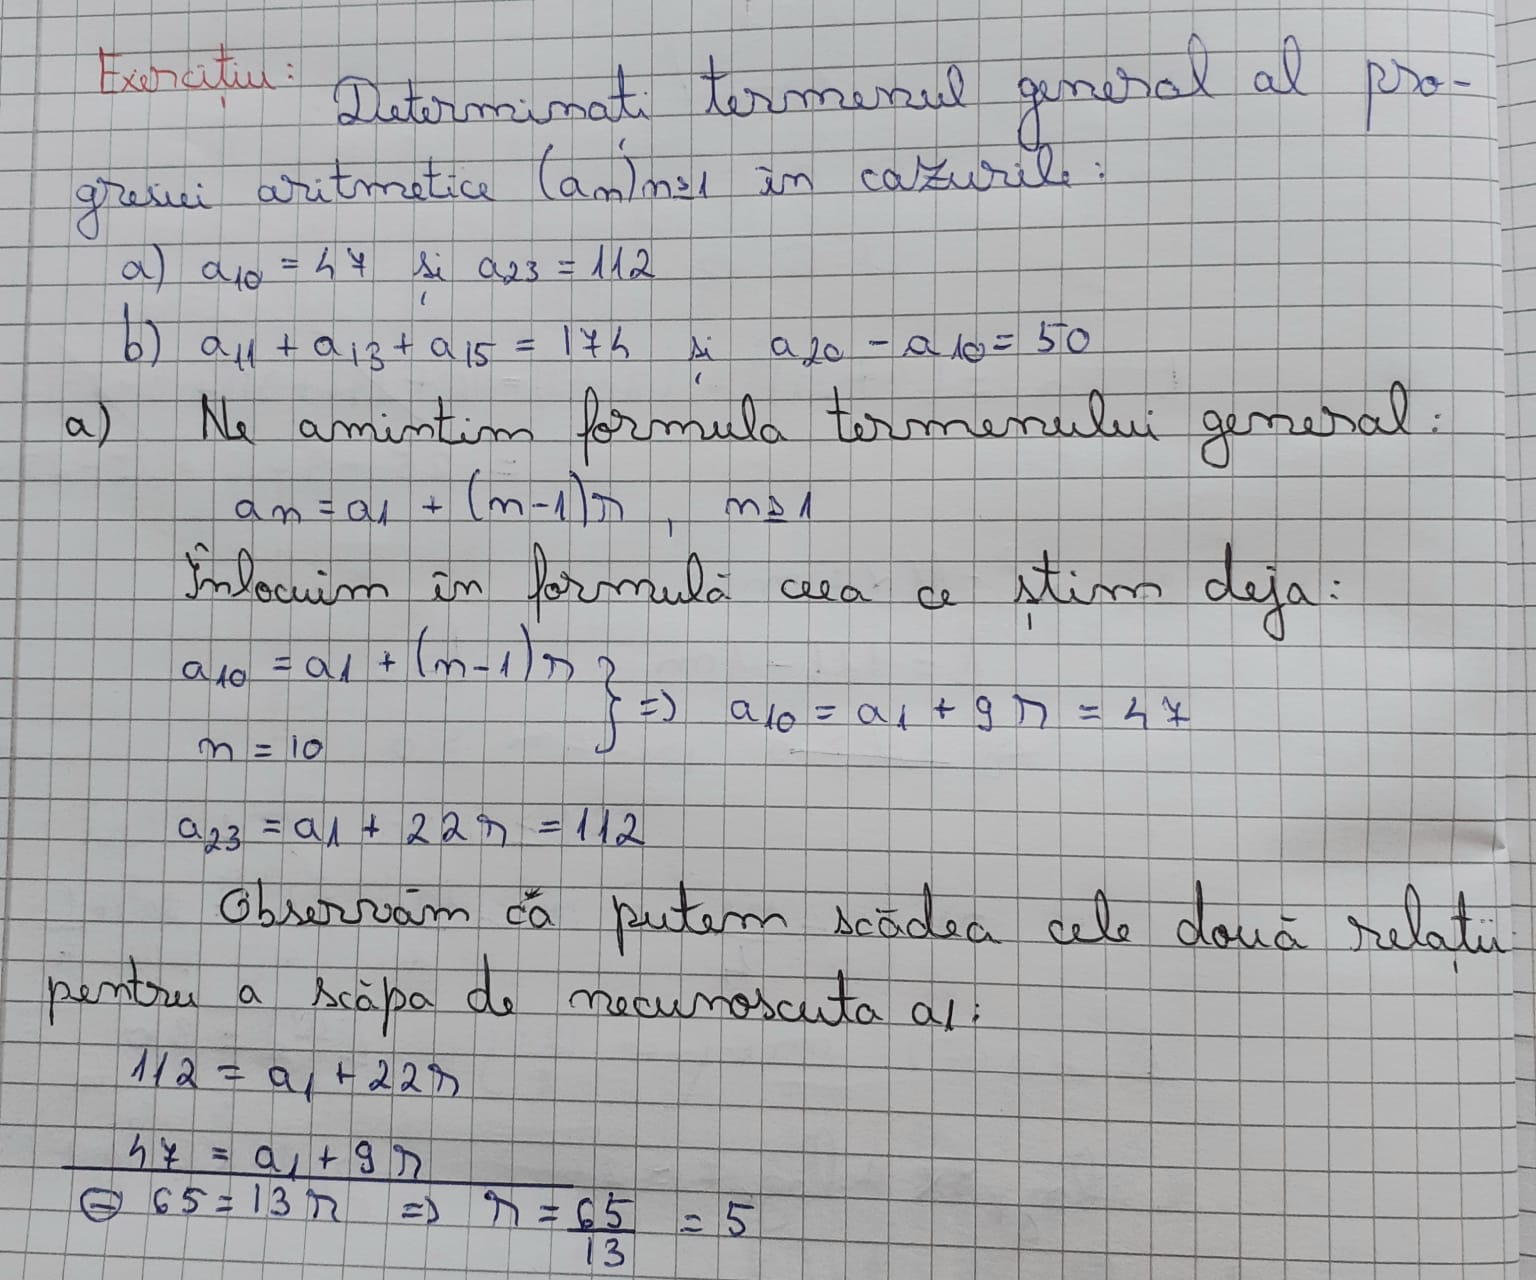 Exercițiu: Determinați termenul general al pro-
gresiei aritmetice (an)n≥1 în cazurile:
a) a10 = 47 și a23 = 112
b) a11 + a13 + a15 = 174 și a20 - a10 = 50
a) Ne amintim formula termenului general:
an = a1 + (n-1)r, n≥1
Înlocuim în formulă ceea ce știm deja:
a10 = a1 + (n-1)r } => a10 = a1 + 9r = 47
n = 10
a23 = a1 + 22r = 112
Observăm că putem scădea cele două relații
pentru a scăpa de necunoscuta a1:
112 = a1 + 22r
47 = a1 + 9r
⊖ 65 = 13r => r = 65/13 = 5